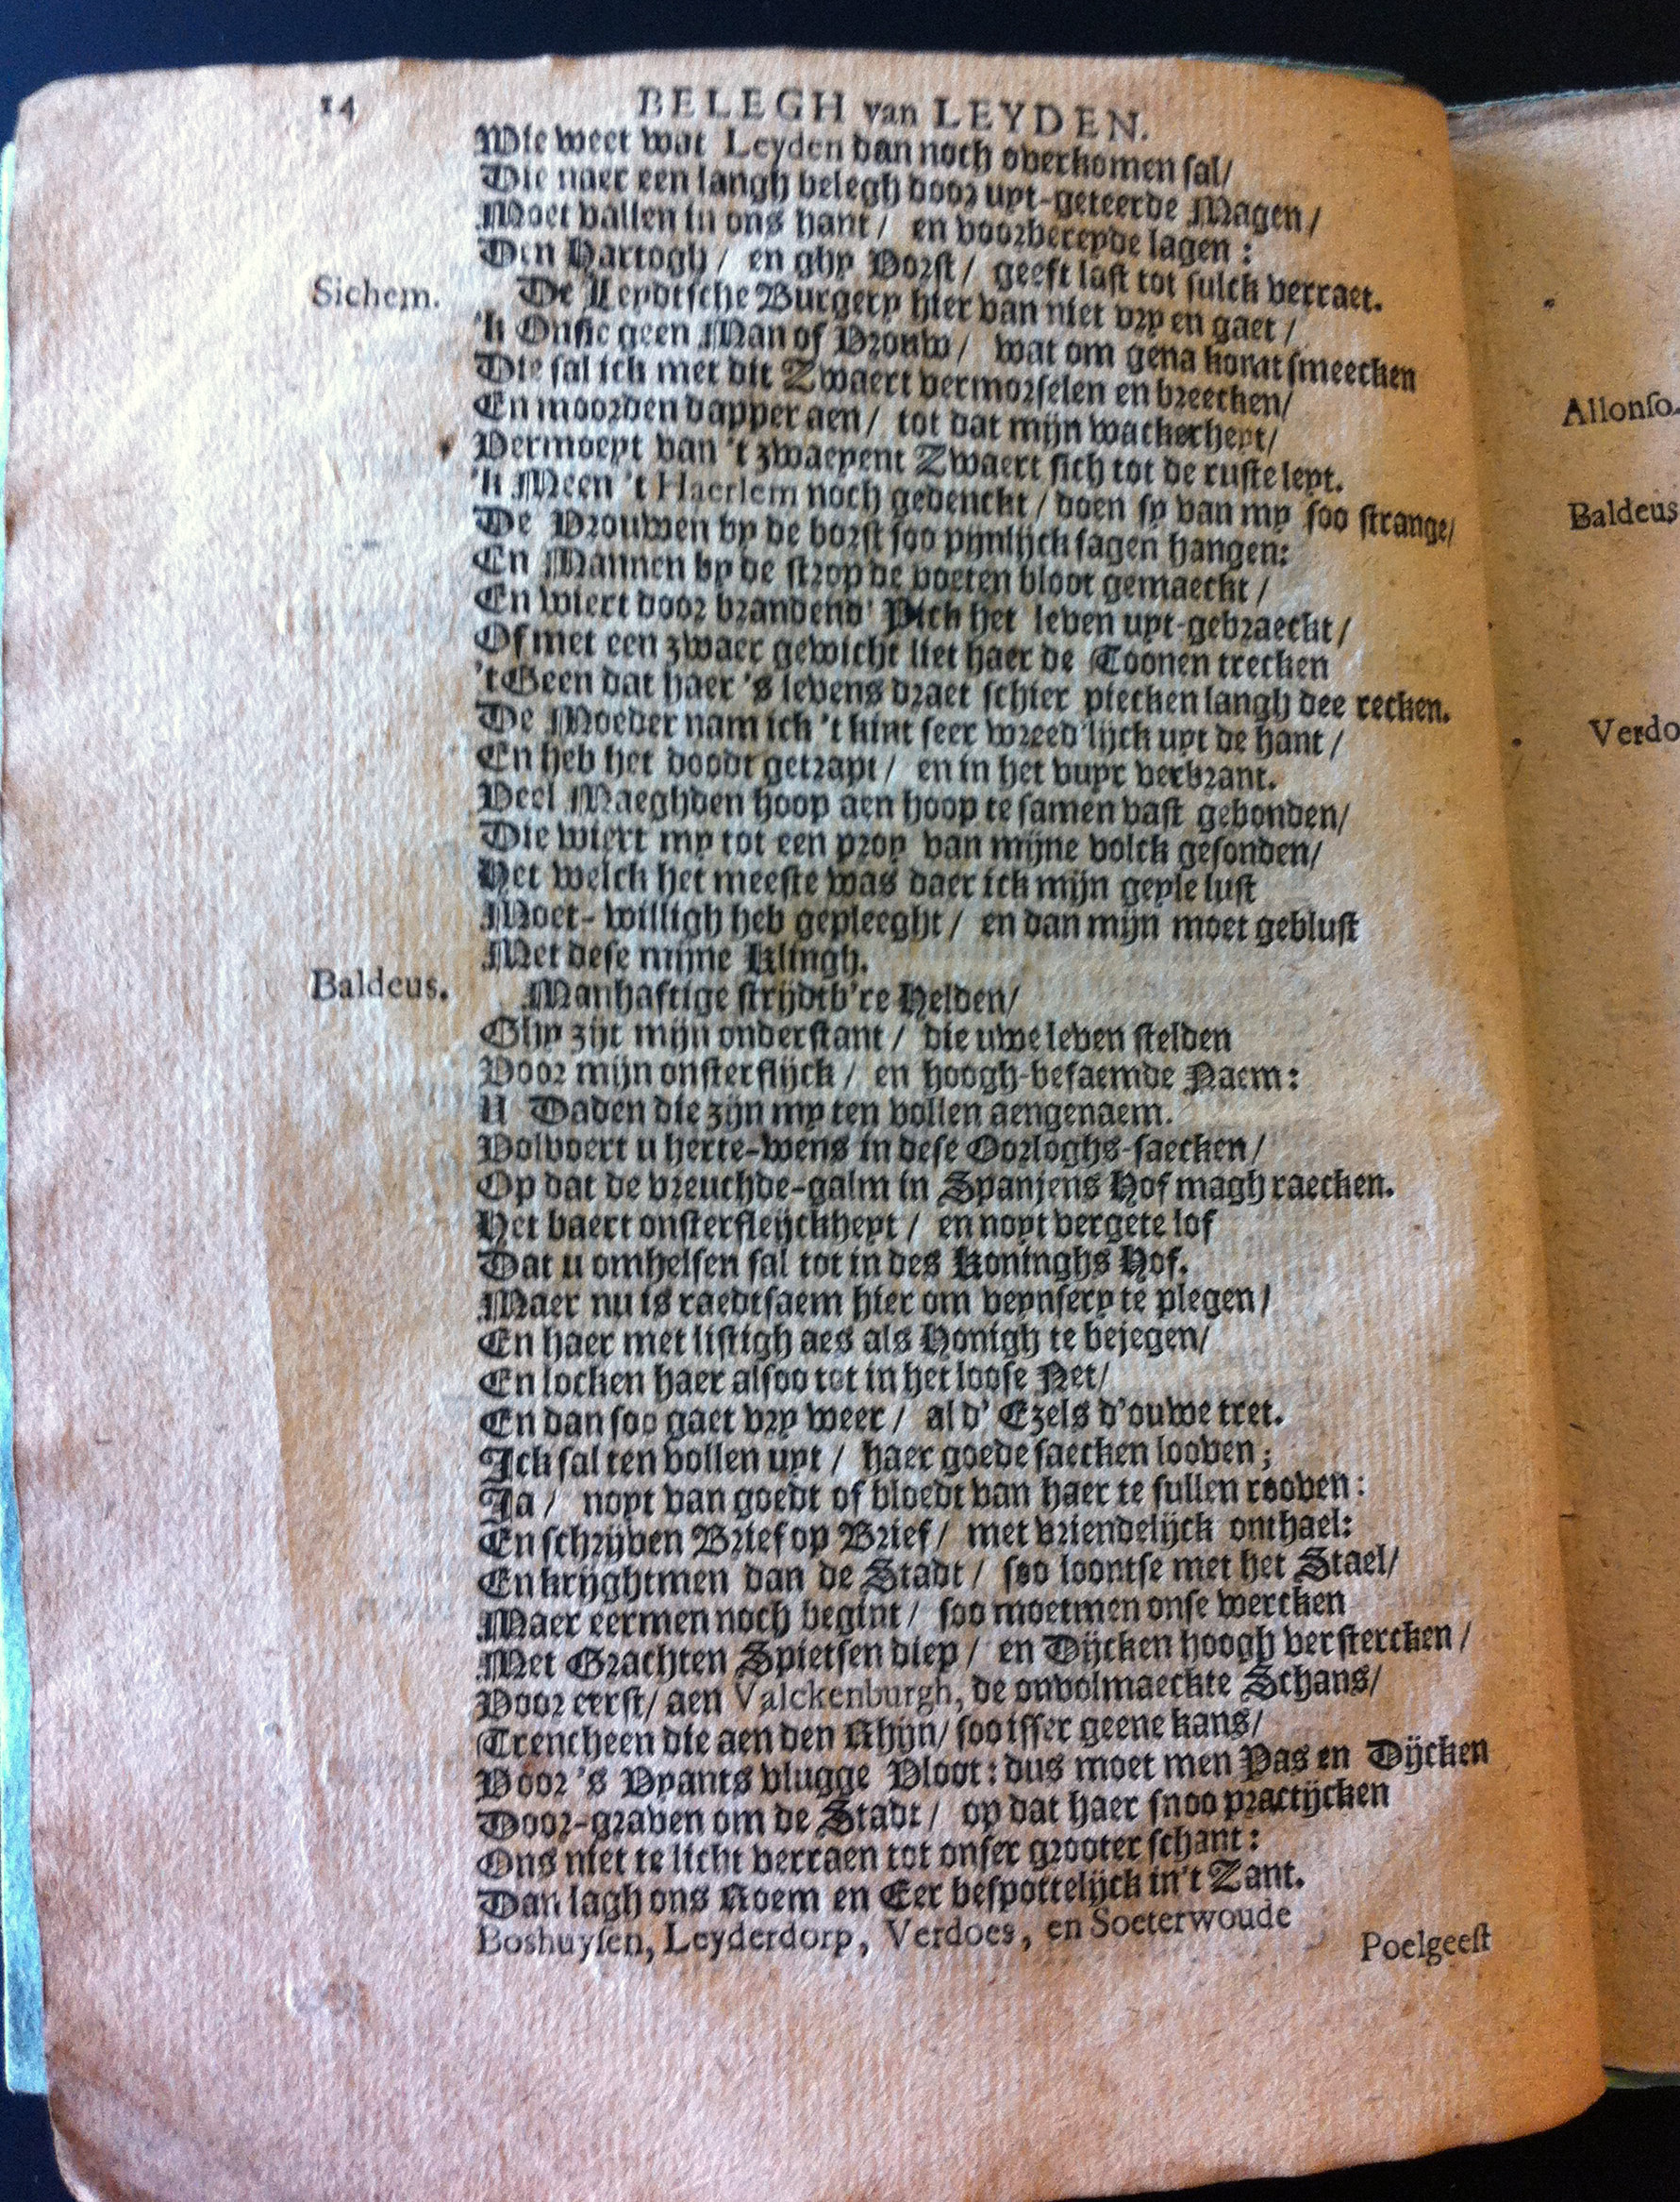 14 BELEGH van LEYDEN.
Wie weet wat Leyden dan noch overkomen sal/
Die naer een langh belegh door uyt-geteerde Magen/
Moet vallen in ons hant / en voorbereyde lagen :
Den Hartogh / en ghy Vorst / geeft last tot sulck verraet.
Sichem. De Leydtsche Burgery hier van niet vry en gaet /
'k Onsie geen Man of Vrouw / wat om gena komt smeecken
Die sal ick met dit Zwaert vermorselen en breecken/
En moorden dapper aen / tot dat mijn wackerheyt/
Vermoeyt van 't zwaeyent Zwaert sich tot de ruste leyt.
'k Meen 't Haerlem noch gedenckt / doen sy van my soo strange/
De Vrouwen by de borst soo pijnlijck sagen hangen:
En Mannen by de strop de voeten bloot gemaeckt /
En wiert door brandend' Pick het leven uyt-gebraeckt /
Of met een zwaer gewicht liet haer de Toonen trecken
't Geen dat haer 's levens draet schier piecken langh dee recken.
De Moeder nam ick 't kint seer wreed'lijck uyt de hant /
En heb het doodt getrapt / en in het vuyr verbrant.
Veel Maeghden hoop aen hoop te samen vast gebonden/
Die wiert my tot een proy van mijne volck gesonden/
Het welch het meeste was daer ick mijn geyle lust
Moet-willigh heb gepleeght / en dan mijn moet geblust
Met dese mijne Klingh.
Baldeus. Manhaftige strijdtb're Helden/
Ghy zijt mijn onderstant / die uwe leven stelden
Voor mijn onsterflijck / en hoogh-befaemde Naem:
U Daden die zijn my ten vollen aengenaem.
Volvoert u herte-wens in dese Oorloghs-saecken/
Op dat de vreuchde-galm in Spanjens Hof magh raecken.
Het baert onsterfleijckheyt / en noyt vergete lof
Dat u omhelsen sal tot in des Koninghs Hof.
Maer nu is raedtsaem hier om veynsery te plegen/
En haer met listigh aes als Honigh te bejegen/
En locken haer alsoo tot in het loose Net/
En dan soo gaet vry weer / al d' Ezels d'ouwe tret.
Ick sal ten vollen uyt / haer goede saecken looven ;
Ja / noyt van goedt of bloedt van haer te sullen rooven :
En schrijven Brief op Brief / met vriendelijck onthael:
En krijghtmen dan de Stadt / soo loontse met het Stael/
Maer eermen noch begint / soo moetmen onse wercken
Met Grachten Spietsen diep / en Dijcken hoogh verstercken /
Voor eerst/ aen Valckenburgh, de onvolmaeckte Schans/
Trencheen die aen den Rhijn/ soo isser geene kans/
Voor 's Vyants vlugge Vloot : dus moet men Pas en Dijcken
Door-graven om de Stadt / op dat haer snoo practijcken
Ons niet te licht verraen tot onser grooter schant :
Dan lagh ons Roem en Eer bespottelijck in't Zant.
Boshuysen, Leyderdorp, Verdoes, en Soeterwoude
Poelgeest
Allonso.
Baldeus
Verdo